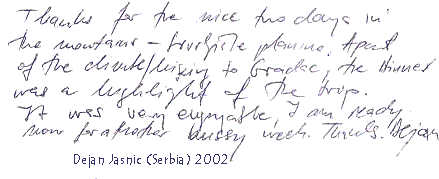 Thanks for the nice two days in
the mountains – planina. Apart
of the climb/hiking to Gradac, the dinner
was a highlight of the trip.
It was very enjoyable, I am ready
now for another bussy week. Thanks. Dejan
Dejan Jasnic (Serbia) 2002